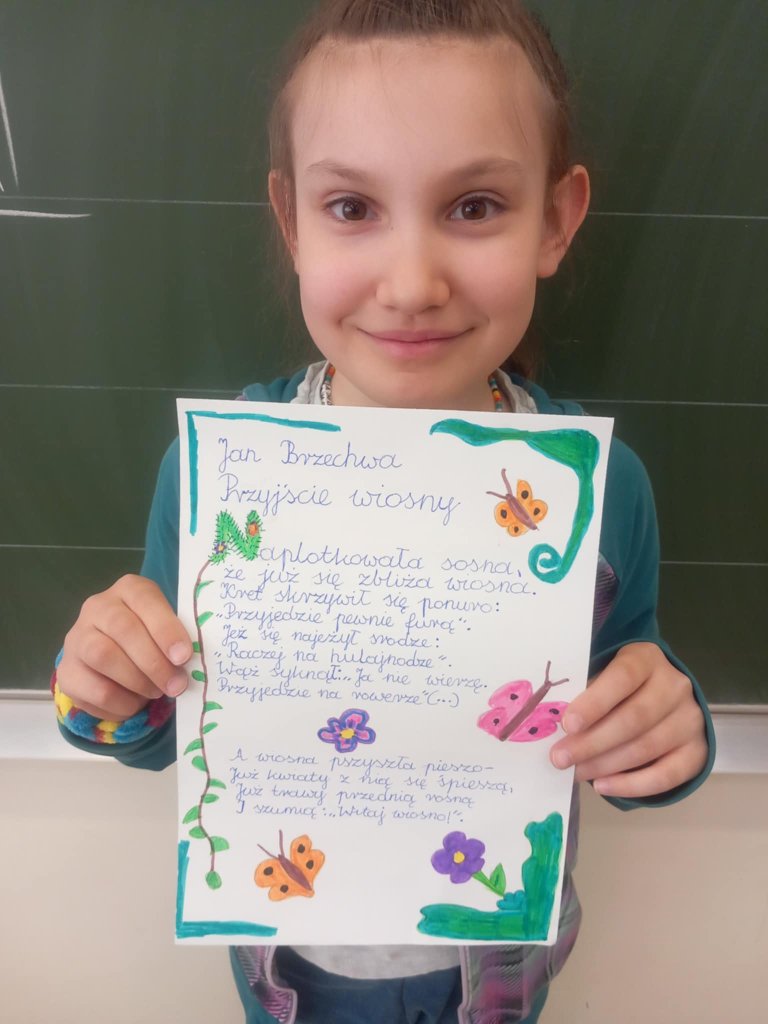 Jan Brzechwa
Przyjście wiosny
Naplotkowała sosna,
że już się zbliża wiosna.
Kret skrzywił się ponuro:
„Przyjedzie pewnie furą".
Jeż się najeżył srodze:
„Raczej na hulajnodze".
Wąż syknął: „Ja nie wierzę.
Przyjedzie na rowerze" (...)
A wiosna pszyszła pieszo-
Już kwiaty z nią się śpieszą,
Już trawy przednią rosną
I szumią: „Witaj wiosno!".